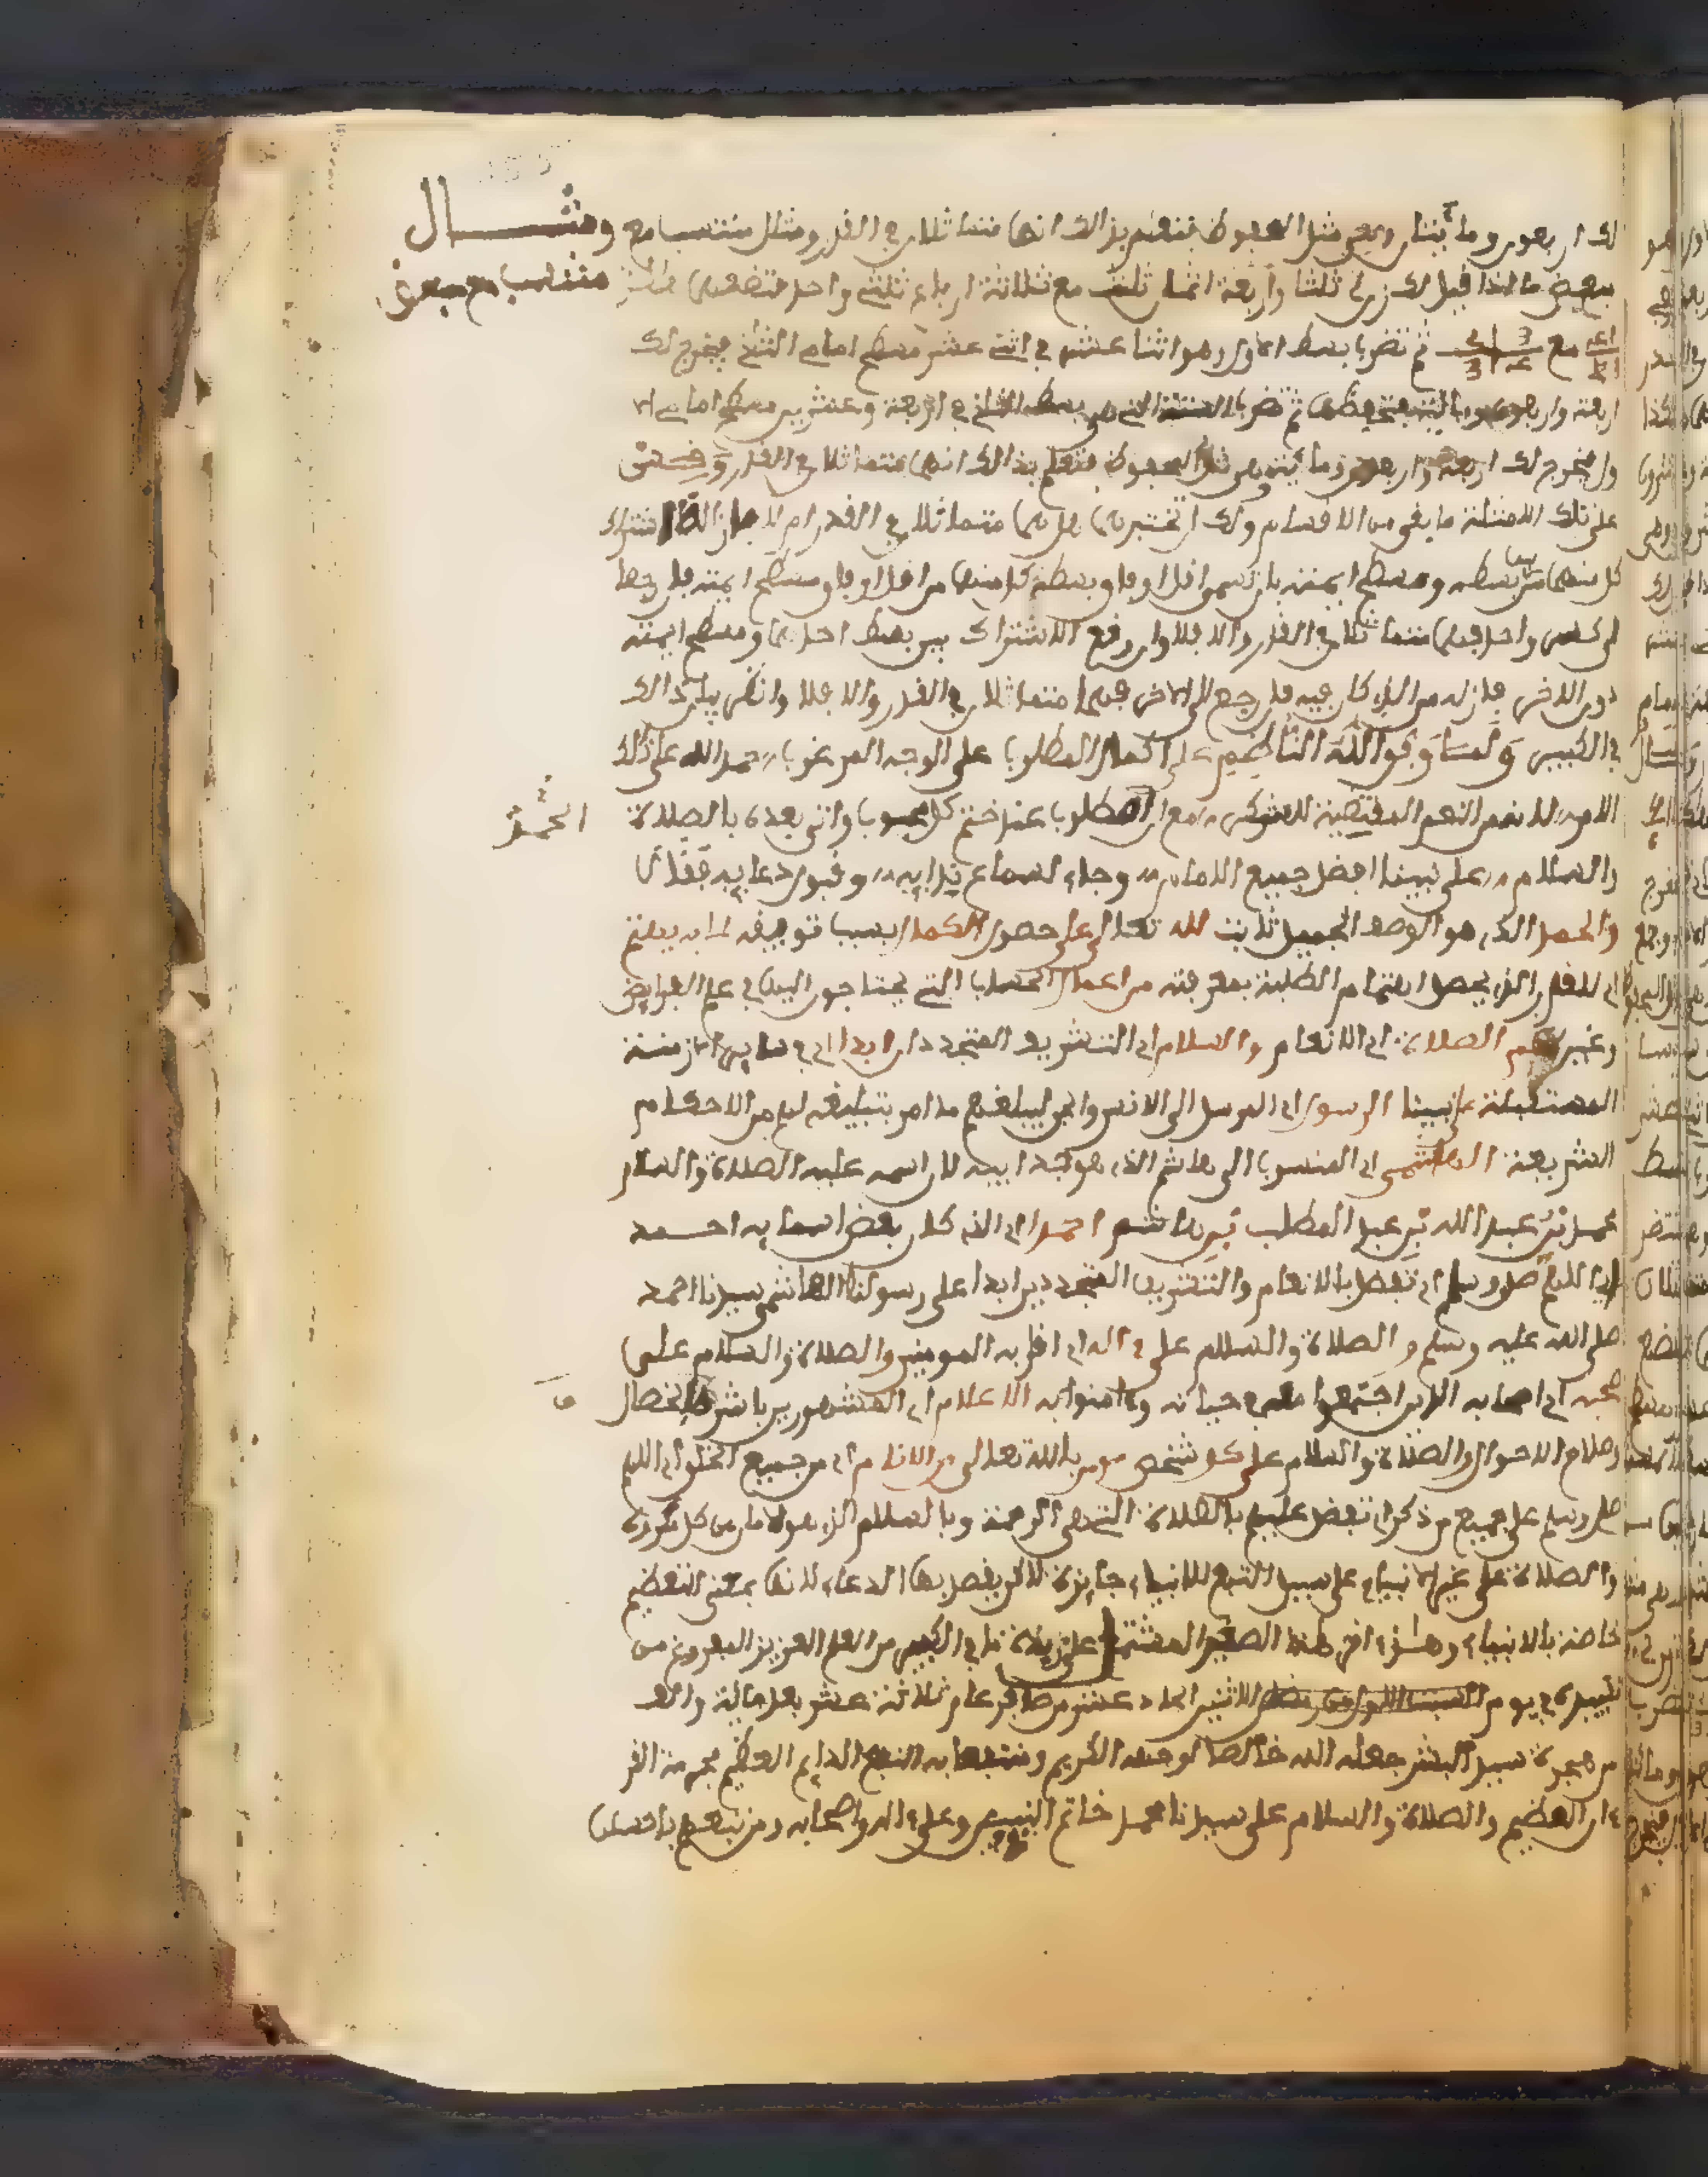 لك اربعون ومائتان وهي مثل المحفوظ فتعلم بذالك انهما متماثلان في القدر ومثال منتسب مع ومثـــال
ببعض ما اذا قيل لك زن لي ثلثا واربعة اثمان ثلث مع ثلاثة ارباع ثلثي واحد منتسب مع مبعض
مع ثم تضرب بسط الاول وهو اثنا عشر في اثني عشر مسطح امامي الثاني يخرج لك
اربعة واربعون ومائة فتحفظها ثم تضرب الستة التي هي بسط الثاني في اربعة وعشرين مسطح امامي الا
ول يخرج لك اربعة واربعون ومائة وهي مثل المحفوظ فتعلم بذالك انهما متماثلان في القدر وقس
على تلك الامثلة ما بقي من الاقسام ولك ان تختبرهما هل هما متماثلان في القدر ام لا اشتراك
كل منهما بين بسطه ومسطح ايمته
كسر واحد فهما متماثلان في القدر والا فلا وان رفع الاشتراك بين بسط احدهما ومسطح ايمته
دون الاخر فان رجع الى الاخر فهما متماثلان في القدر والا فلا وانظر بيان ذالك
في الكبير ولما وفق الله الناظم على اكمال المطلوب على الوجه المرغوب حمد الله على ذلك
الامر لانه من النعم المقتضية للشكر مع ان المطلوب عند ختم كل محبوب واتى بعده بالصلاة الحمد
والسلام على نبينا افضل جميع الانام وجاء لسماع ندايه وقبول دعايه فقال
والحمد الذي هو الوصف الجميل ثابت لله تعالى على حصول الكمال بسبب توفيقه
الذي يحصل اهتمام الطلبة بمعرفته من اعمال الحساب التي يحتاجون اليها في علم الفرايض
وغيره ثم الصلاة اي الانعام والسلام اي التشريف المتجددان ابدا اي في ساير الازمنة
المستقبلة على نبينا الرسول اي المرسل الى الانس والجن ليبلغهم ما امر بتبليغه لهم من الاحكام
الشرعية الهاشمي اي المنسوب الى هاشم الذي هو جد ابيه لان اسمه عليه الصلاة والسلام
محمد بن عبد الله بن عبد المطلب بن هاشم احمد اي الذي كان بعض اسمايه احمد
اي اللهم صل وسلم اي تفضل بالانعام والتشريف المتجددين ابدا على رسولنا الهاشمي سيدنا احمد
صلى الله عليه وسلم و الصلاة والسلام على ءاله اي اقاربه المومنين والصلاة والسلام على
صحبه اي اصحابه الذين اجتمعوا معه في حياته وءامنوا به الاعلام اي المشهورين باشرف الخصال
وصلاح الاحوال والصلاة والسلام على كل شخص مومن بالله تعالى من الانام اي من جميع الخلق اي اللهم
صل وسلم على جميع من ذكر اي تفضل عليهم بالصلاة التي هي الرحمة وبالسلام الذي هو الامان من كل مكروه
والصلاة على غير الانبياء على سبيل التبع للانبياء جايزة لا ان يقصد بها الدعاء لانها بمعنى التعظيم
خاصة بالانبياء وهذا ءاخر هذا الصغير المشتمل على زبدة ما في الكبير من العلم العزيز المفروغ من
تقييده في يوم الاثنين الحادي عشر من صفر عام ثلاثة عشر بعد مائة والف
من هجرة سيد البشر جعله الله خالصا لوجهه الكريم ومنتفعا به النفع الدايم العظيم بحرمة القر
ءان العظيم والصلاة والسلام على سيدنا محمد خاتم النبيين وعلى ءاله واصحابه ومن تبعهم باحسان